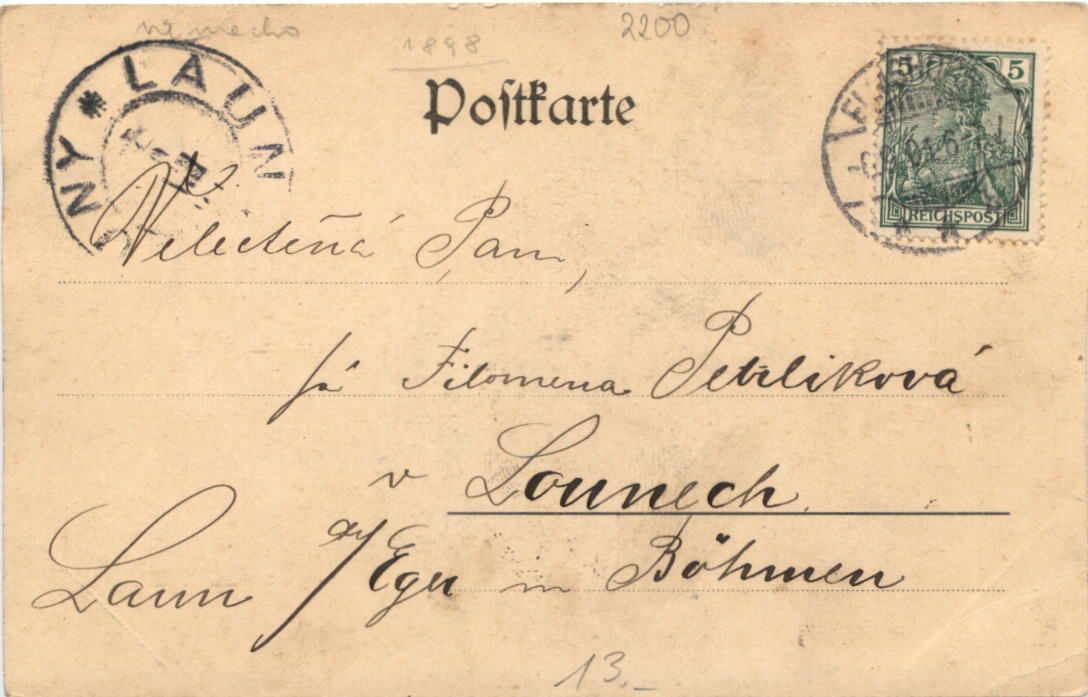 německo
1898
2200
Postkarte
5 5
REICHSPOST
NY * LAUN
Velectěná Paní,
Filomena Petrliková
v Lounech
Laun a/ Eger in Böhmen
13.-